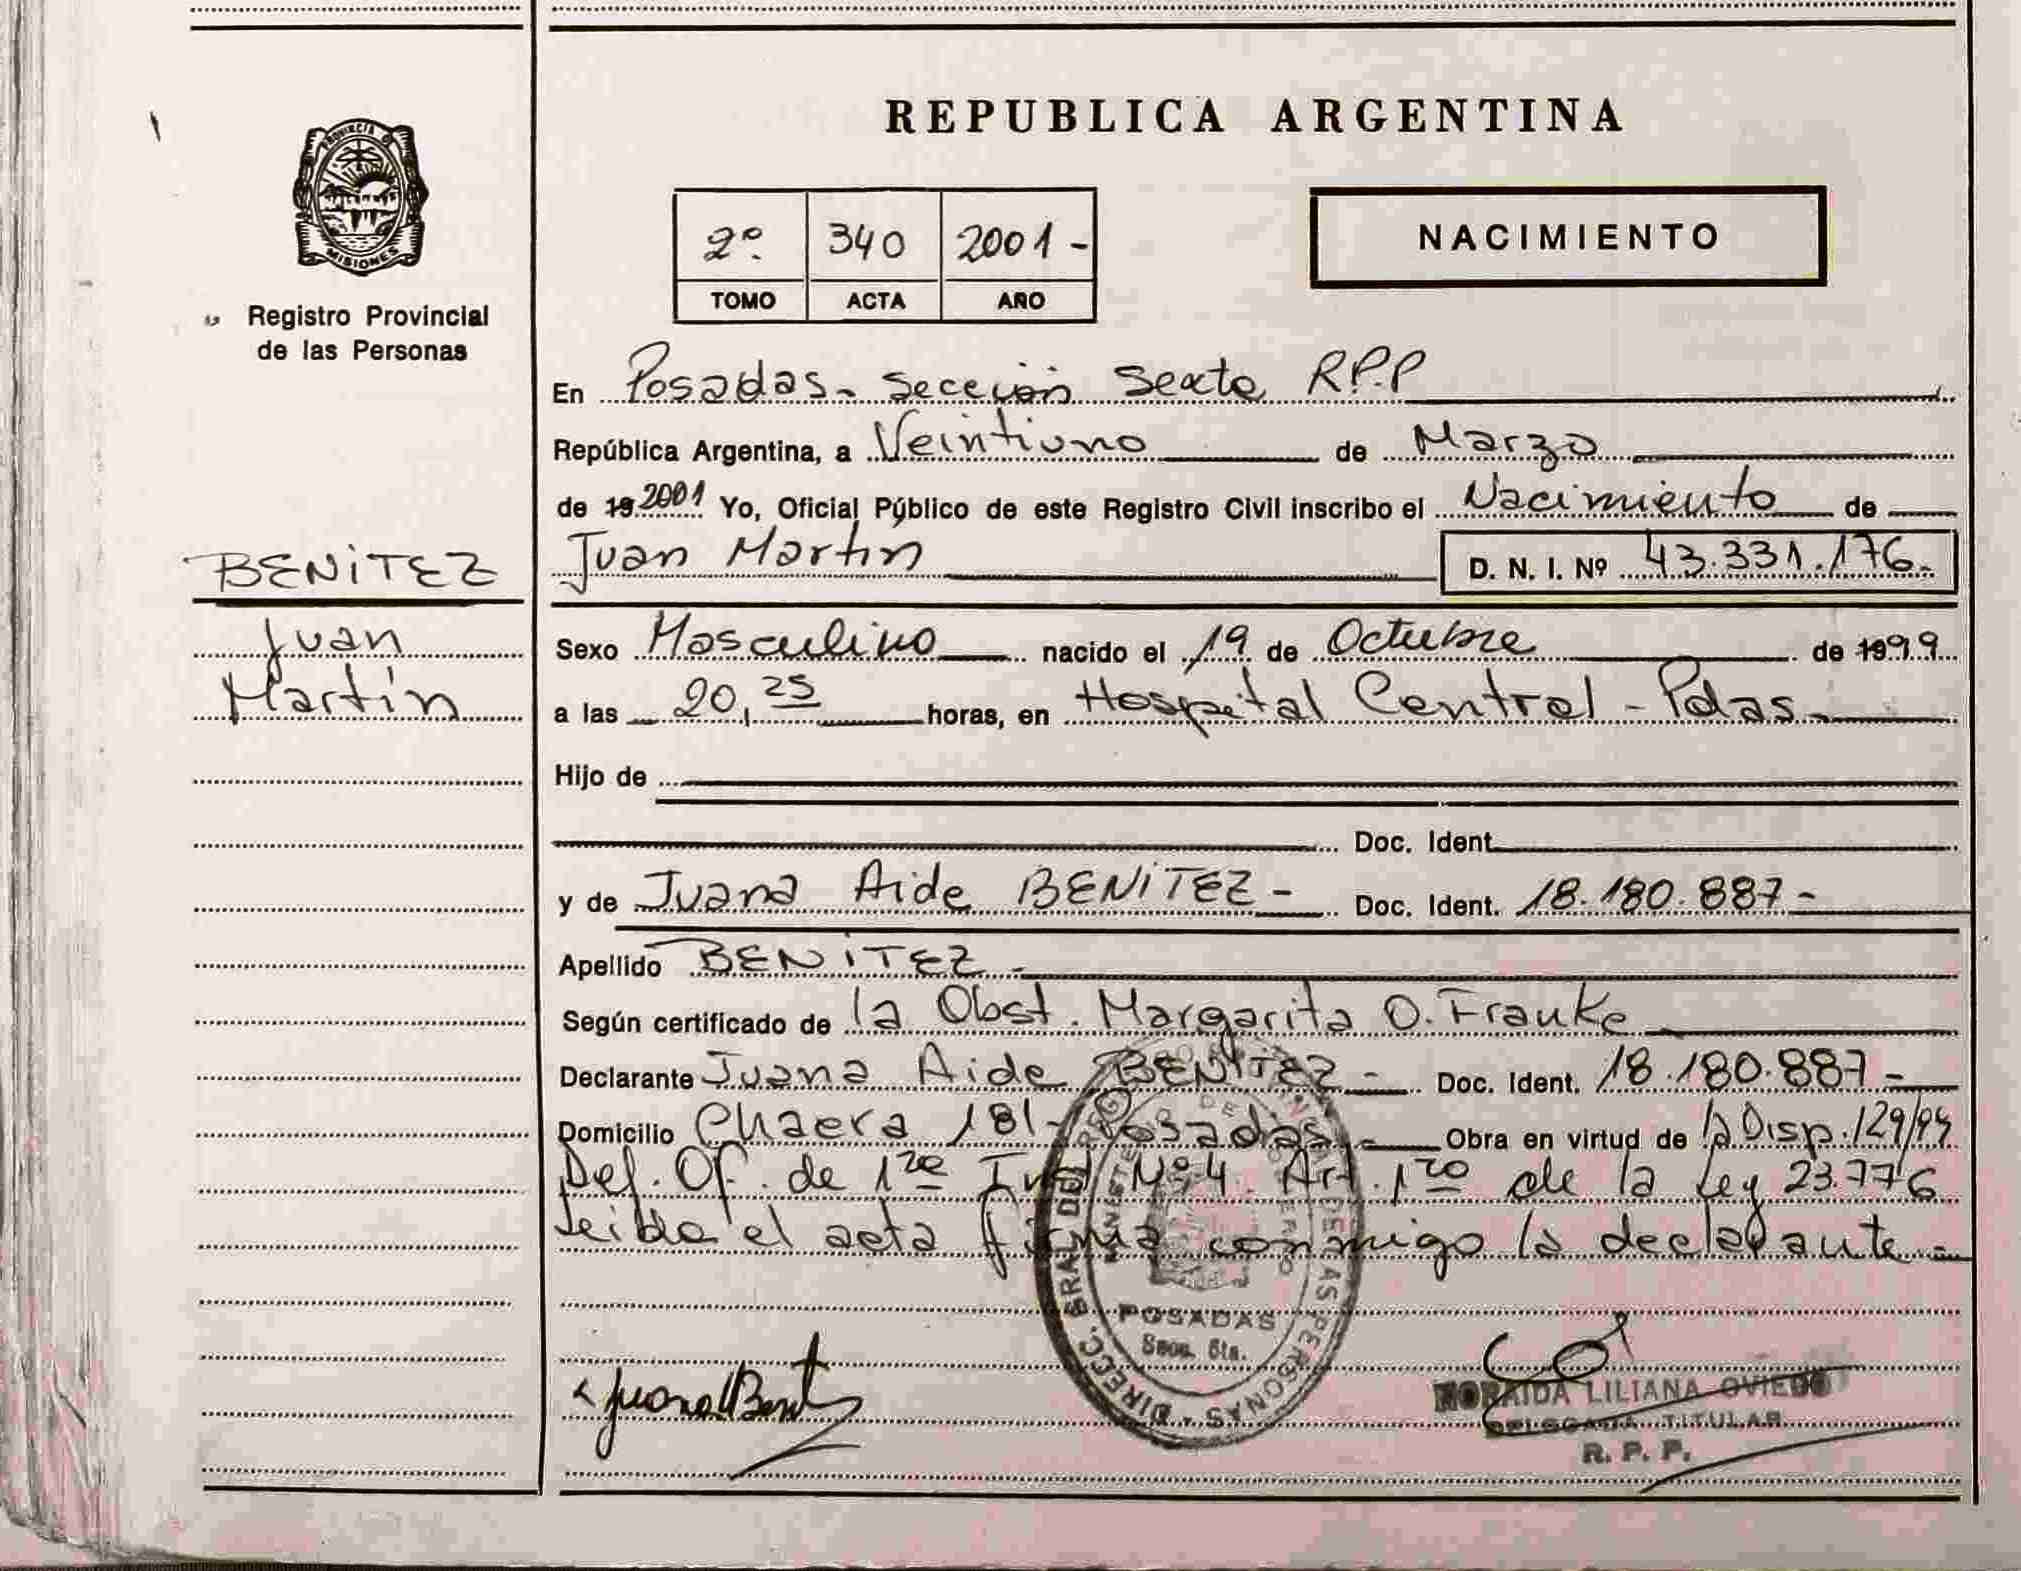 REPUBLICA ARGENTINA
PROVINCIA DE
MISIONES
Registro Provincial
de las Personas
2º. 340 2001 -
TOMO ACTA AÑO
NACIMIENTO
En Posadas - Sección Sexta R.P.P
República Argentina, a Veintiuno de Marzo
de 19 2001 Yo, Oficial Público de este Registro Civil inscribo el Nacimiento de
Juan Martin D. N. I. Nº 43.331.176.-
BENITEZ
Juan
Martín
Sexo Masculino nacido el 19 de Octubre de 1999
a las 20,25 horas, en Hospital Central - Pdas -
Hijo de
Doc. Ident.
y de Juana Aide BENITEZ - Doc. Ident. 18.180.887 -
Apellido BENITEZ -
Según certificado de la Obst. Margarita O. Franke
Declarante Juana Aide BENITEZ - Doc. Ident. 18.180.887 -
Domicilio Chacra 181 - Posadas - Obra en virtud de la Disp. 129/94
Def. Of. de 1ra Inst Nº 4. Art. 1ro de la Ley 23.776
Leida el acta firma conmigo la declarante -
DIRECC. GRAL. DEL REG. DE LAS PERSONAS
POSADAS
Secc. 6ta.
Juana Benitez
LILIANA OVIEDO
DELEGADA TITULAR
R. P. P.